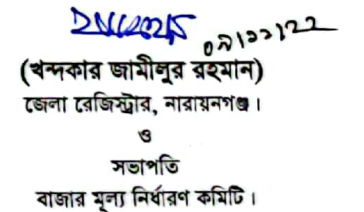 ০৭/১১/২২
(খন্দকার জামীলুর রহমান)
জেলা রেজিস্ট্রার, নারায়নগঞ্জ।
ও
সভাপতি
বাজার মূল্য নির্ধারণ কমিটি।